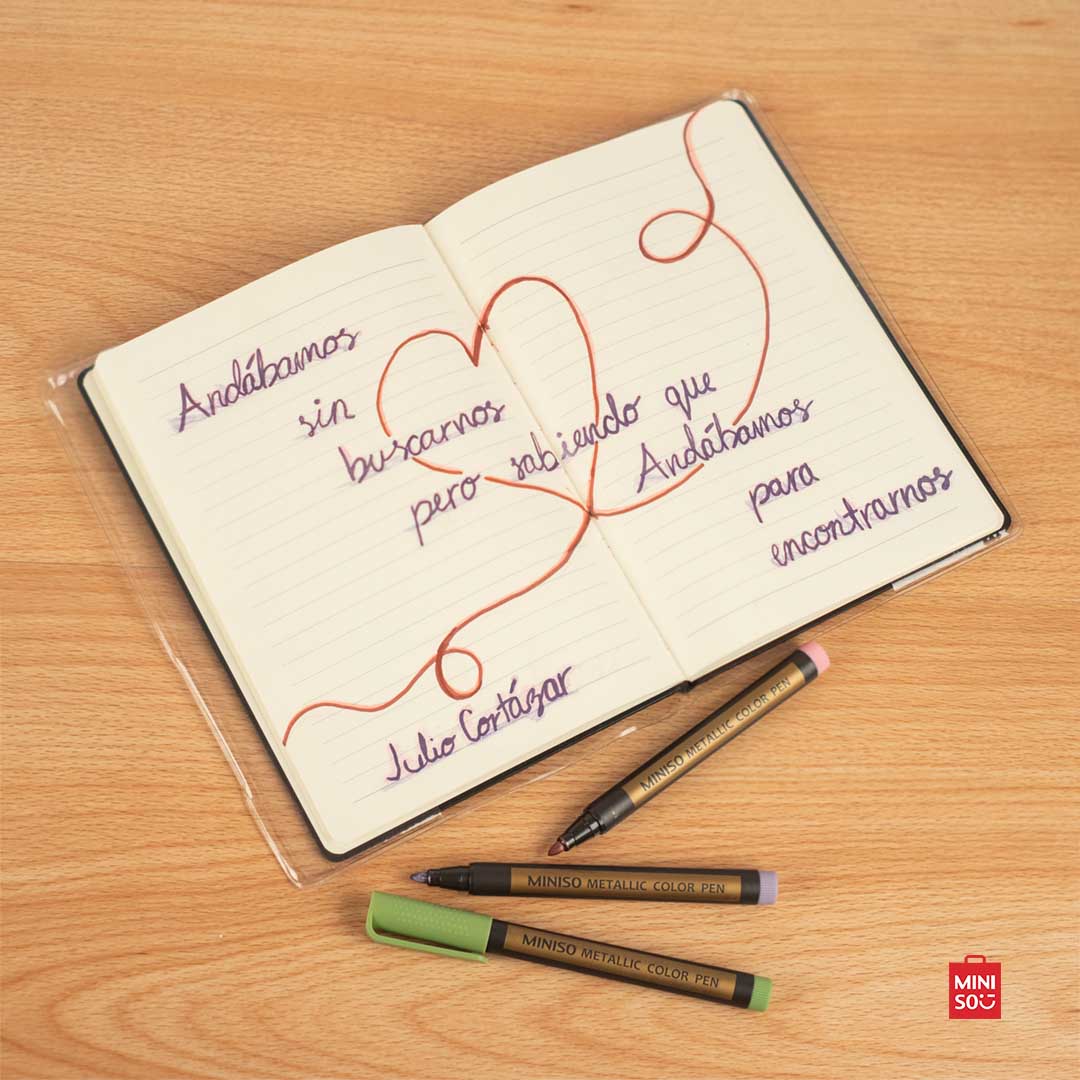 Andábamos
sin
buscarnos
pero sabiendo que
Andábamos
para
encontrarnos
Julio Cortázar
MINISO METALLIC COLOR PEN
MINISO METALLIC COLOR PEN
MINISO METALLIC COLOR PEN
MINI
SO